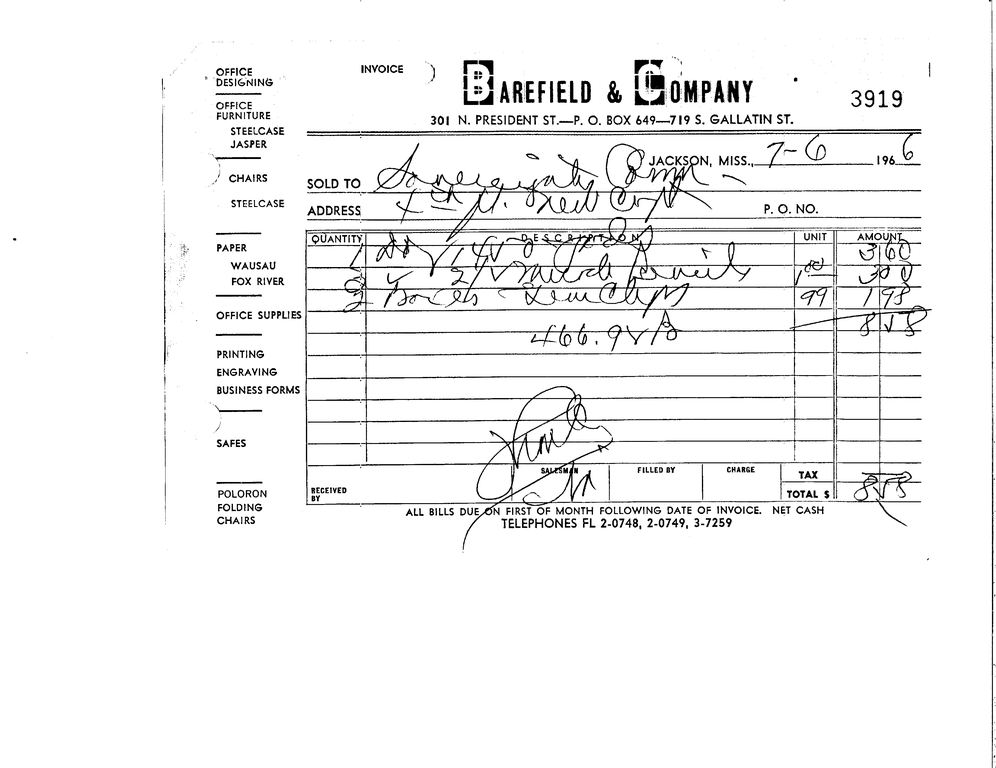 INVOICE
BAREFIELD & COMPANY
3919
301 N. PRESIDENT ST.—P. O. BOX 649—719 S. GALLATIN ST.
JACKSON, MISS., 7-6 1966
SOLD TO Sovereignty Comm
ADDRESS 4th
P. O. NO.
QUANTITY DESCRIPTION UNIT AMOUNT
1 3 60
2 1 00
2 Boxes Gem Clips 99 1 98
8 58
466.9
SALESMAN FILLED BY CHARGE TAX
RECEIVED BY
TOTAL $ 8 58
ALL BILLS DUE ON FIRST OF MONTH FOLLOWING DATE OF INVOICE. NET CASH
TELEPHONES FL 2-0748, 2-0749, 3-7259
OFFICE
DESIGNING
OFFICE
FURNITURE
STEELCASE
JASPER
CHAIRS
STEELCASE
PAPER
WAUSAU
FOX RIVER
OFFICE SUPPLIES
PRINTING
ENGRAVING
BUSINESS FORMS
SAFES
POLORON
FOLDING
CHAIRS